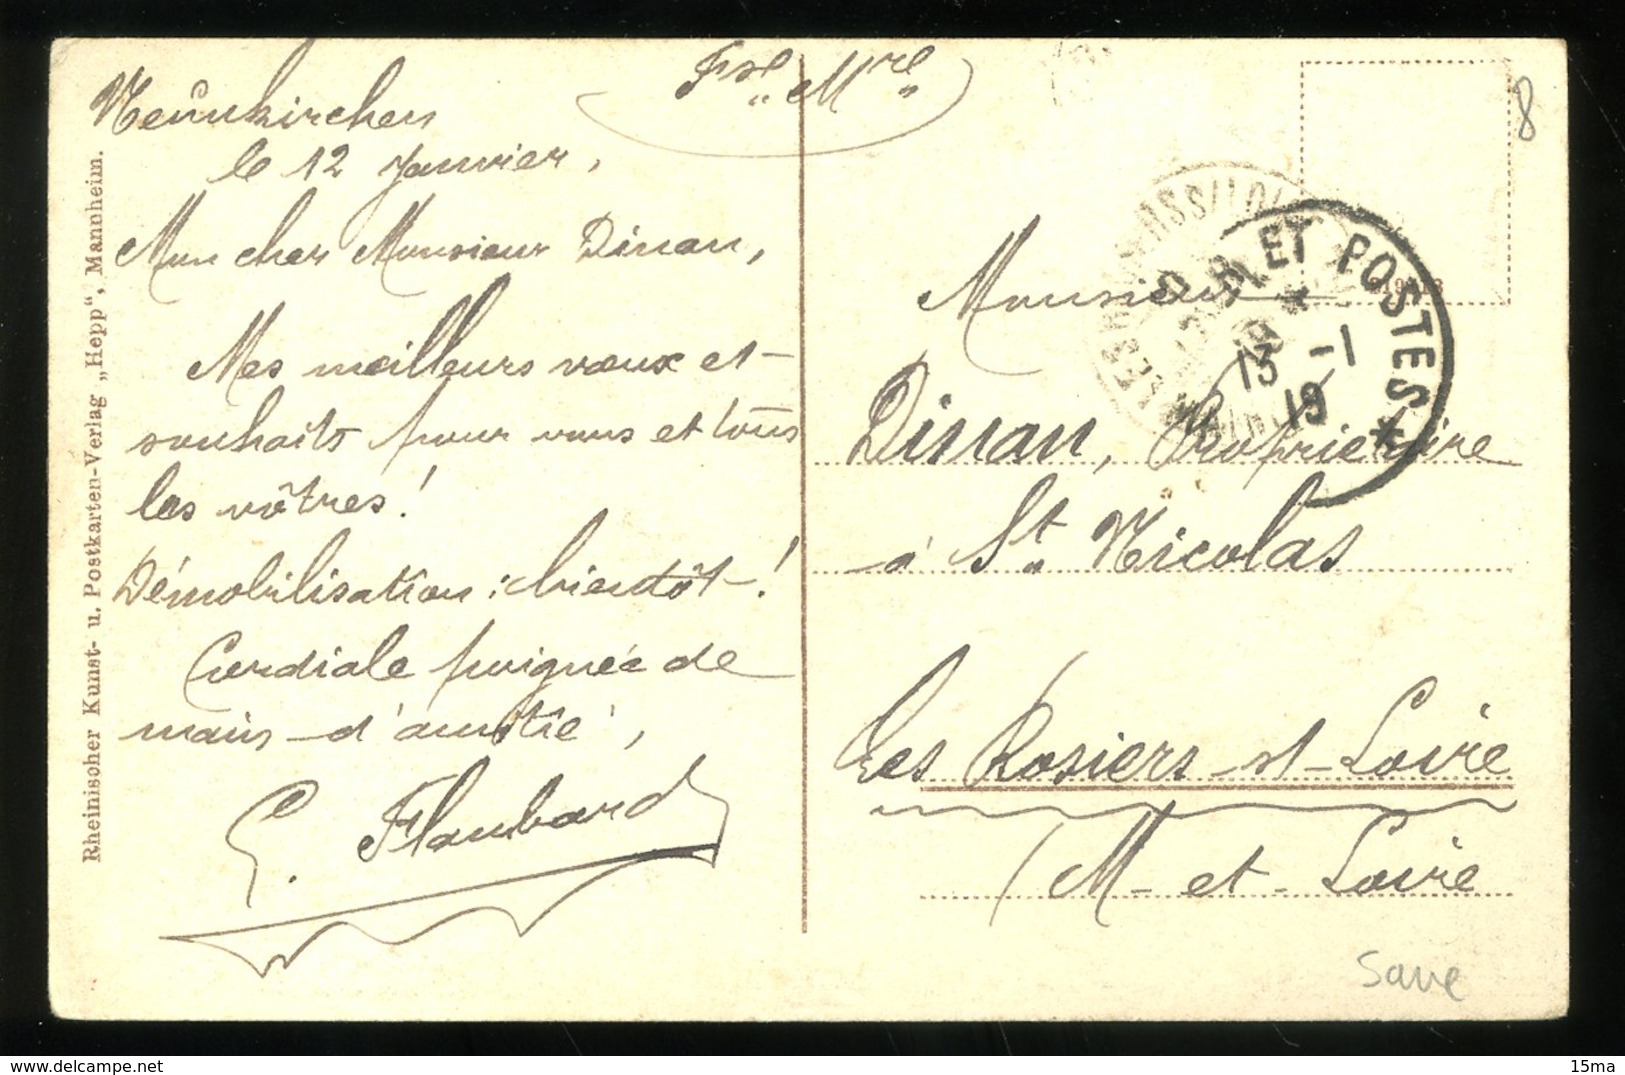 Fse Mre
Neunkirchen
le 12 Janvier,
Mon cher Monsieur Dinan,
Mes meilleurs vœux et
souhaits pour vous et tous
les vôtres!
Démobilisation: bientôt!
Cordiale poignée de
main d'amitié,
Rheinischer Kunst- u. Postkarten-Verlag „Hepp“, Mannheim.
ET POSTES *
13 -1
19
Monsieur
Dinan, Propriétaire
à St Nicolas
Les Rosiers-s/-Loire
(M-et-Loire
8
Sarre
15ma